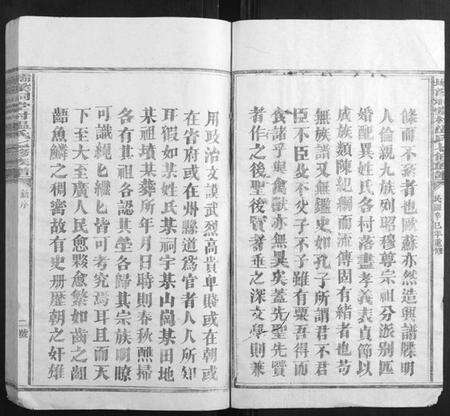 條而不紊者也歐蘇亦然造與譜牒明
人倫親九族列昭穆尊宗祖分派別匹
婚配異姓氏各村落盡孝義表貞節以
成族類陳紀綱而流傳固有緒者也苟
無族譜又無鑑史如孔子所謂君不君
臣不臣父不父子不子雖有粟吾得而
食諸乎與禽獸亦無異矣蓋先聖先賢
者作之後聖後賢者垂之深文學則兼
用政治文謨武烈高貴卑賤或在朝或
在省府或在州縣道爲官者人人所知
耳假如某姓氏某祠宇某山崗某田地
某祖墳某葬所年月日時則春秋醮掃
各有其祖各認其塋各歸其宗族明瞭
可識繩匕繼匕皆可考究焉耳且而天
下至大至廣人民愈夥愈繁如齒之齟
齬魚鱗之稠密故有史册歷朝之奸雄